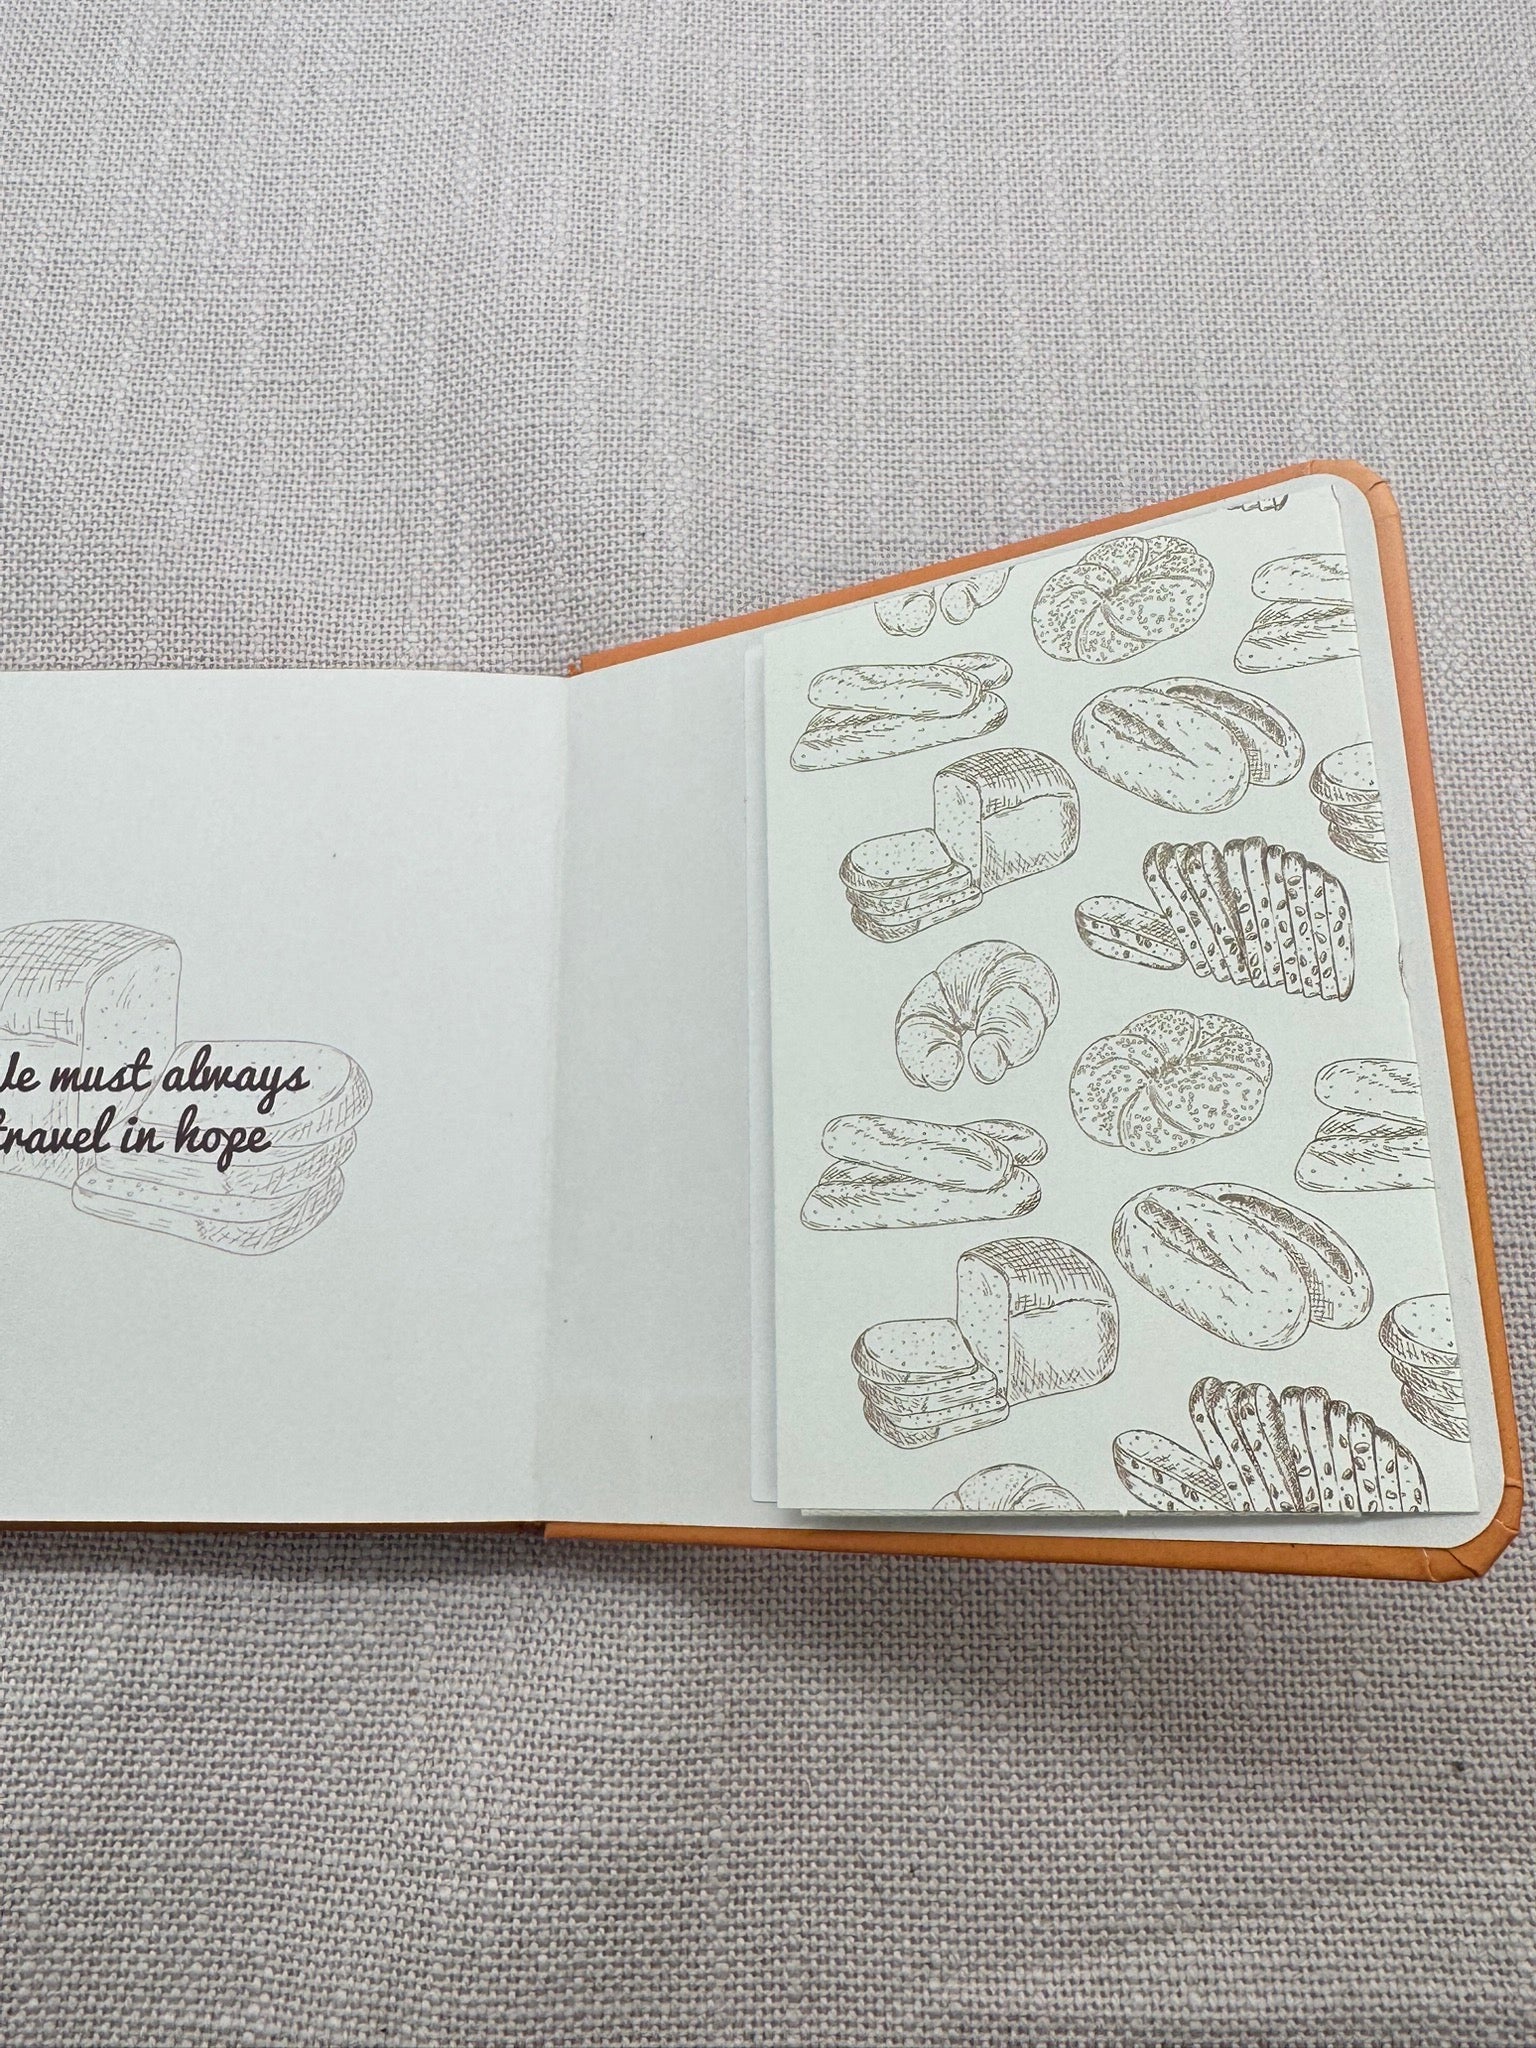 We must always
travel in hope